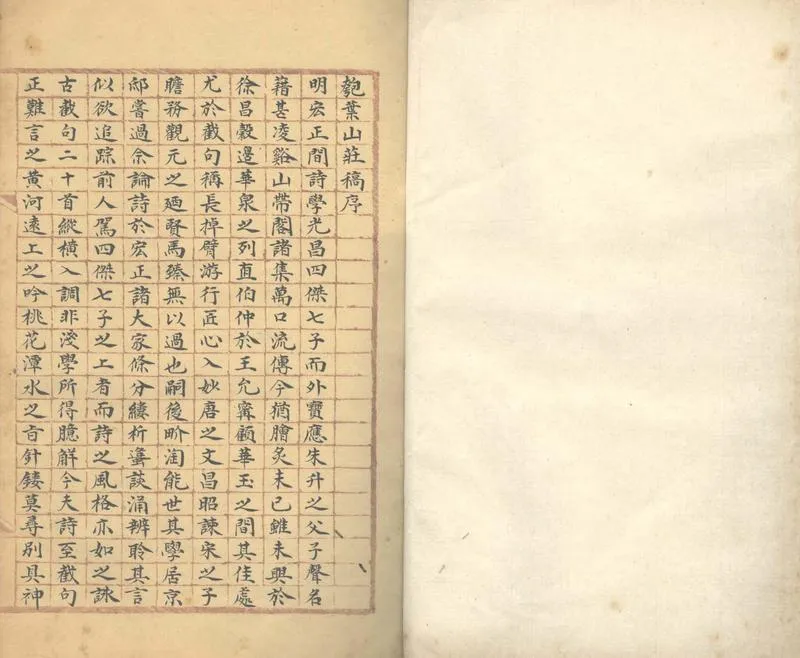 匏葉山莊稿序
明宏正間詩學光昌四傑七子而外寶應朱升之父子聲名
藉甚凌谿山帶閣諸集萬口流傳今猶膾炙未已雖未與於
徐昌穀邊華泉之列直伯仲於王允甯顧華玉之間其佳處
尤於截句稱長掉臂游行匠心入妙唐之文昌昭諫宋之子
瞻務觀元之廼賢馬臻無以過也嗣後畍淘能世其學居京
邸嘗過余論詩於宏正諸大家條分縷析談涌辨聆其言
似欲追踪前人駕四傑七子之上者而詩之風格亦如之詠
古截句二十首縱橫入調非淺學所得臆解今夫詩至截句
正難言之黃河遠上之吟桃花潭水之旨針鏤莫尋別具神